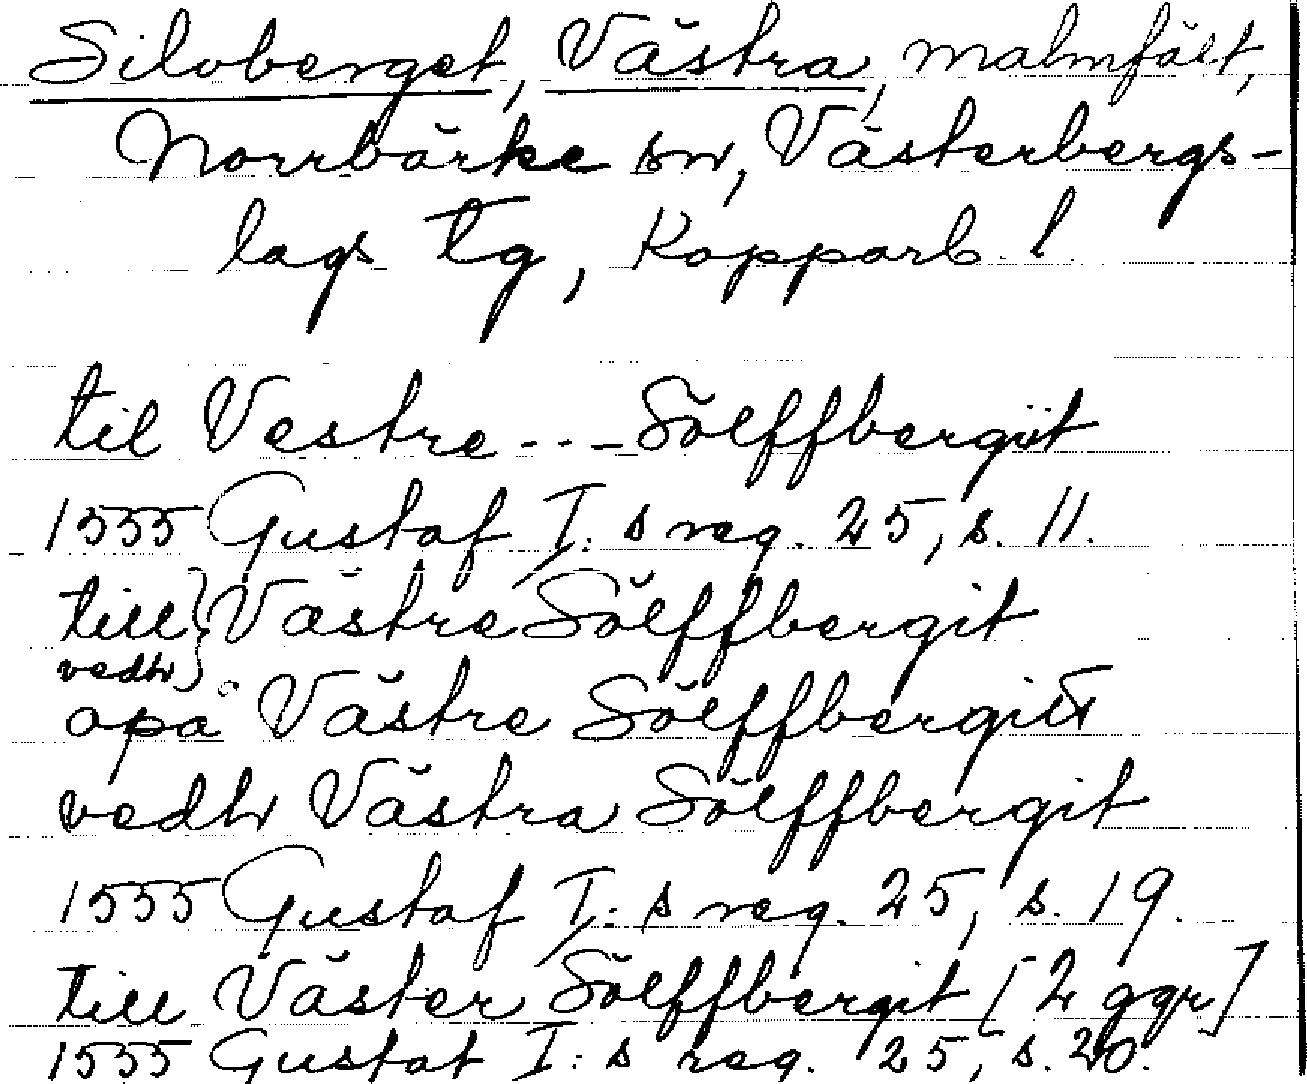 Silvberget, Västra, malmfält,
Norrbärke sn, Västerbergs-
lags tg, Kopparb. l
til Vestre - - - Sölffbergiit
1555 Gustaf I: s reg. 25, s. 11.
till } Västre Sölffbergit
vedh
opå Västre Sölffbergitt
vedh Västra Sölffbergit
1555 Gustaf I: s reg. 25, s. 19.
till Väster Sölffbergit [2 ggr]
1555 Gustaf I: s reg. 25, s. 20.